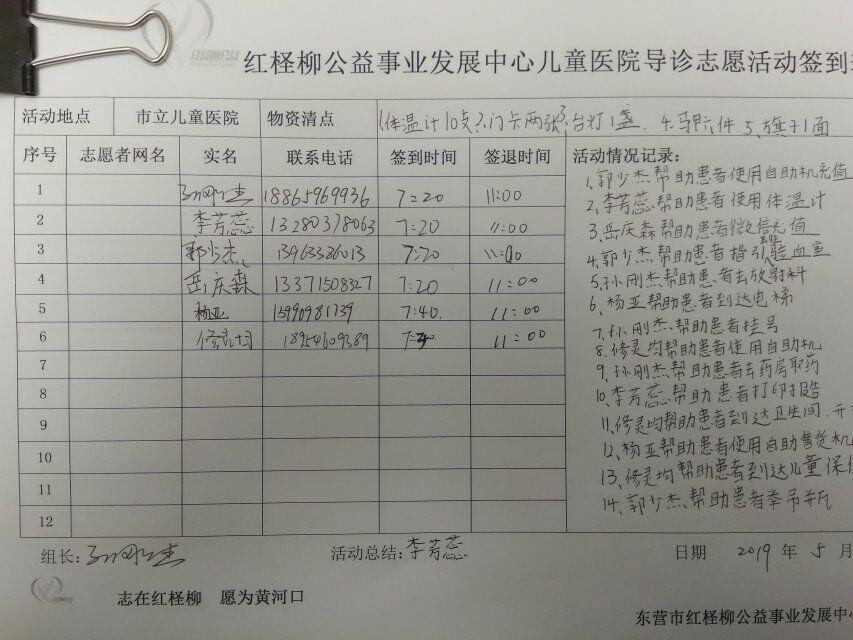 红柽柳公益事业发展中心儿童医院导诊志愿活动签到
活动地点 市立儿童医院 物资清点 1体温计10支 2、门卡两张 3、台灯1盏 4、马甲六件 5、旗子1面
序号 志愿者网名 实名 联系电话 签到时间 签退时间 活动情况记录:
1 孙刚杰 18865969936 7:20 11:00
2 李芳蕊 13280378063 7:20 11:00
3 郭少杰 13963386013 7:20 11:00
4 岳庆森 13371508327 7:20 11:00
5 杨亚 15990981739 7:40. 11:00
6 修灵均 18954609389 11:00
7
8
9
10
11
12
1、郭少杰帮助患者使用自助机充值
2、李芳蕊.帮助患者使用体温计
3、岳庆森帮助患者微信充值
4、郭少杰.帮助患者指引去往验血室
5、孙刚杰帮助患者去放射科
6、杨亚帮助患者到达电梯
7、孙刚杰.帮助患者挂号
8、修灵均帮助患者使用自助机
9、孙刚杰.帮助患者去药房取药
10、李芳蕊.帮助患者打印报告
11、修灵均帮助患者到达卫生间.
12、杨亚帮助患者使用自助售货机
13、修灵均帮助患者到达儿童保
14、郭少杰.帮助患者举吊瓶
组长:孙刚杰 活动总结:李芳蕊 日期 2019年5月
志在红柽柳 愿为黄河口
东营市红柽柳公益事业发展中